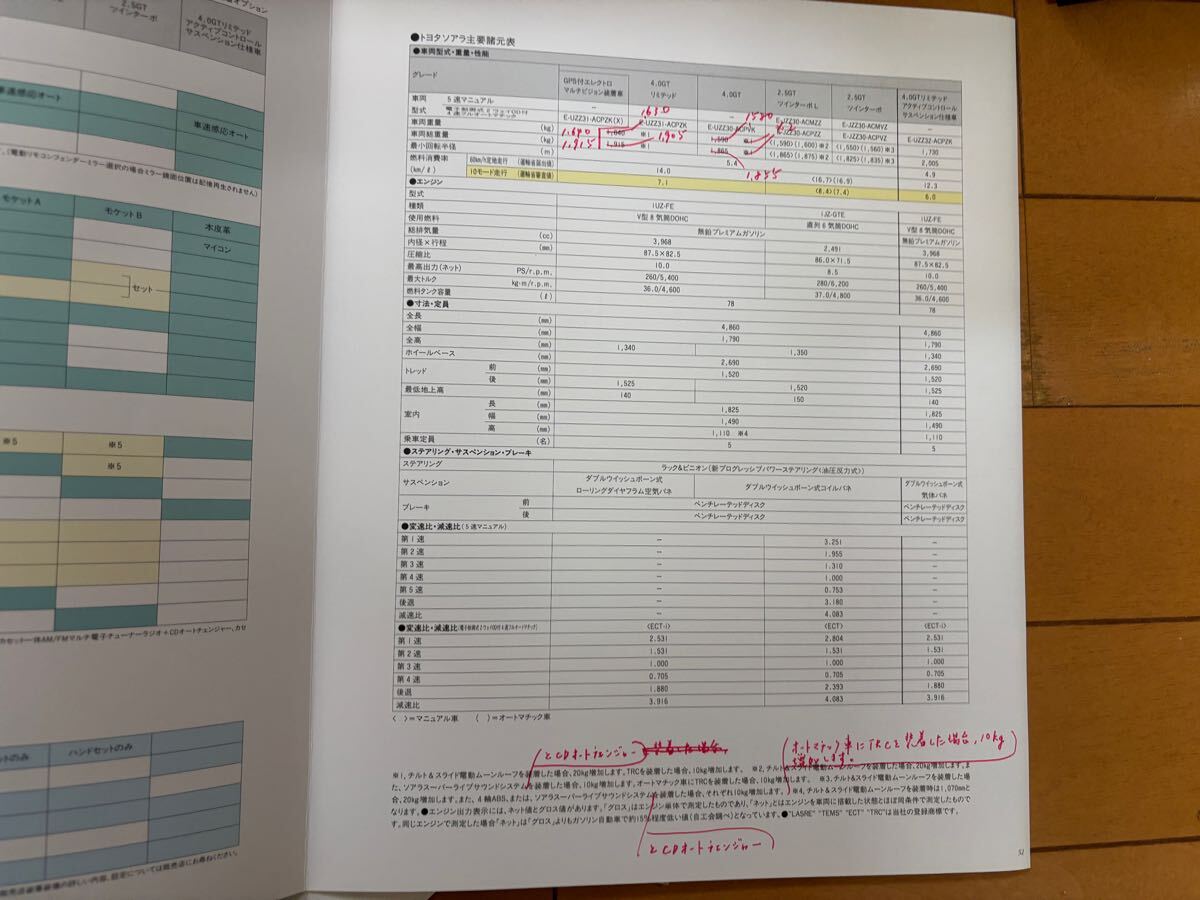 2.5GT
ツインターボ
4.0GTリミテッド
アクティブコントロール
サスペンション仕様車
車速感応オート
車速感応オート
モケットA
モケットB
本皮革
マイコン
セット
※5
※5
※5
ハンドセットのみ
●トヨタソアラ主要諸元表
●車両型式・重量・性能
グレード
GPS付エレクトロ
マルチビジョン装着車
4.0GT
リミテッド
4.0GT
2.5GT
ツインターボL
2.5GT
ツインターボ
4.0GTリミテッド
アクティブコントロール
サスペンション仕様車
車両
型式
5速マニュアル
－ － E-JZZ30-ACMZZ E-JZZ30-ACMVZ －
E-UZZ31-ACPZK(X) E-UZZ31-ACPZK E-UZZ30-ACPVK E-JZZ30-ACPZZ E-JZZ30-ACPVZ E-UZZ32-ACPZK
1,630
1,580
車両重量 (kg) 1,640 ※1 1,590 ※1 〈1,590〉(1,600)※2 〈1,550〉(1,560)※3 1,730
車両総重量 (kg) 1,915 ※1 1,865 ※1 〈1,865〉(1,875)※2 〈1,825〉(1,835)※3 2,005
1,915
1,905
1,855
最小回転半径 (m) 5.4 4.9
燃料消費率
(km/ℓ)
60km/h定地走行 (運輸省届出値) 14.0 〈16.7〉(16.9) 12.3
10モード走行 (運輸省審査値) 7.1 〈8.4〉(7.4) 6.0
●エンジン
型式 1UZ-FE 1JZ-GTE 1UZ-FE
種類 V型8気筒DOHC 直列6気筒DOHC V型8気筒DOHC
使用燃料 無鉛プレミアムガソリン 無鉛プレミアムガソリン
総排気量 (cc) 3,968 2,491 3,968
内径×行程 (mm) 87.5×82.5 86.0×71.5 87.5×82.5
圧縮比 10.0 8.5 10.0
最高出力(ネット) PS/r.p.m. 260/5,400 280/6,200 260/5,400
最大トルク kg・m/r.p.m. 36.0/4,600 37.0/4,800 36.0/4,600
燃料タンク容量 (ℓ) 78 78
●寸法・定員
全長 (mm) 4,860 4,860
全幅 (mm) 1,790 1,790
全高 (mm) 1,340 1,350 1,340
ホイールベース (mm) 2,690 2,690
トレッド 前 (mm) 1,520 1,520
後 (mm) 1,525 1,520 1,525
最低地上高 (mm) 140 150 140
室内 長 (mm) 1,825 1,825
幅 (mm) 1,490 1,490
高 (mm) 1,110 ※4 1,110
乗車定員 (名) 5 5
●ステアリング・サスペンション・ブレーキ
ステアリング ラック&ピニオン(新プログレッシブパワーステアリング〈油圧反力式〉)
サスペンション ダブルウイッシュボーン式
ローリングダイヤフラム空気バネ ダブルウイッシュボーン式コイルバネ ダブルウイッシュボーン式
気体バネ
ブレーキ 前 ベンチレーテッドディスク ベンチレーテッドディスク
後 ベンチレーテッドディスク ベンチレーテッドディスク
●変速比・減速比(5速マニュアル)
第1速 － 3.251 －
第2速 － 1.955 －
第3速 － 1.310 －
第4速 － 1.000 －
第5速 － 0.753 －
後退 － 3.180 －
減速比 － 4.083 －
●変速比・減速比(電子制御式2ウェイOD付4速フルオートマチック) 〈ECT-i〉 〈ECT〉 〈ECT-i〉
第1速 2.531 2.804 2.531
第2速 1.531 1.531 1.531
第3速 1.000 1.000 1.000
第4速 0.705 0.705 0.705
後退 1.880 2.393 1.880
減速比 3.916 4.083 3.916
〈 〉=マニュアル車 ( )=オートマチック車
とCDオートチェンジャー
オートマチック車にTRCを装着した場合、10kg
増加します。
※1,チルト&スライド電動ムーンルーフを装着した場合、20kg増加します。TRCを装着した場合、10kg増加します。 ※2,チルト&スライド電動ムーンルーフを装着した場合、20kg増加します。ま
た、ソアラスーパーライブサウンドシステムを装着した場合、10kg増加します。オートマチック車にTRCを装着した場合、10kg増加します。 ※3,チルト&スライド電動ムーンルーフを装着した場
合、20kg増加します。また、4輪ABS、または、ソアラスーパーライブサウンドシステムを装着した場合、それぞれ10kg増加します。 ※4,チルト&スライド電動ムーンルーフを装着時は1,070mmと
なります。 ●エンジン出力表示には、ネット値とグロス値があります。「グロス」はエンジン単体で測定したものであり、「ネット」とはエンジンを車両に搭載した状態とほぼ同条件で測定したもので
す。同じエンジンで測定した場合「ネット」は「グロス」よりもガソリン自動車で約15%程度低い値(自工会調べ)となっています。 ●"LASRE" "TEMS" "ECT" "TRC"は当社の登録商標です。
とCDオートチェンジャー
52